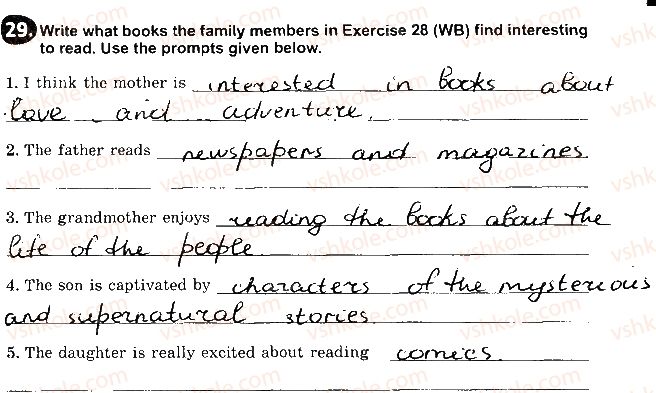 29. Write what books the family members in Exercise 28 (WB) find interesting
to read. Use the prompts given below.
1. I think the mother is interested in books about
love and adventure.
2. The father reads newspapers and magazines
3. The grandmother enjoys reading the books about the
life of the people
4. The son is captivated by characters of the mysterious
and supernatural stories.
5. The daughter is really excited about reading comics.